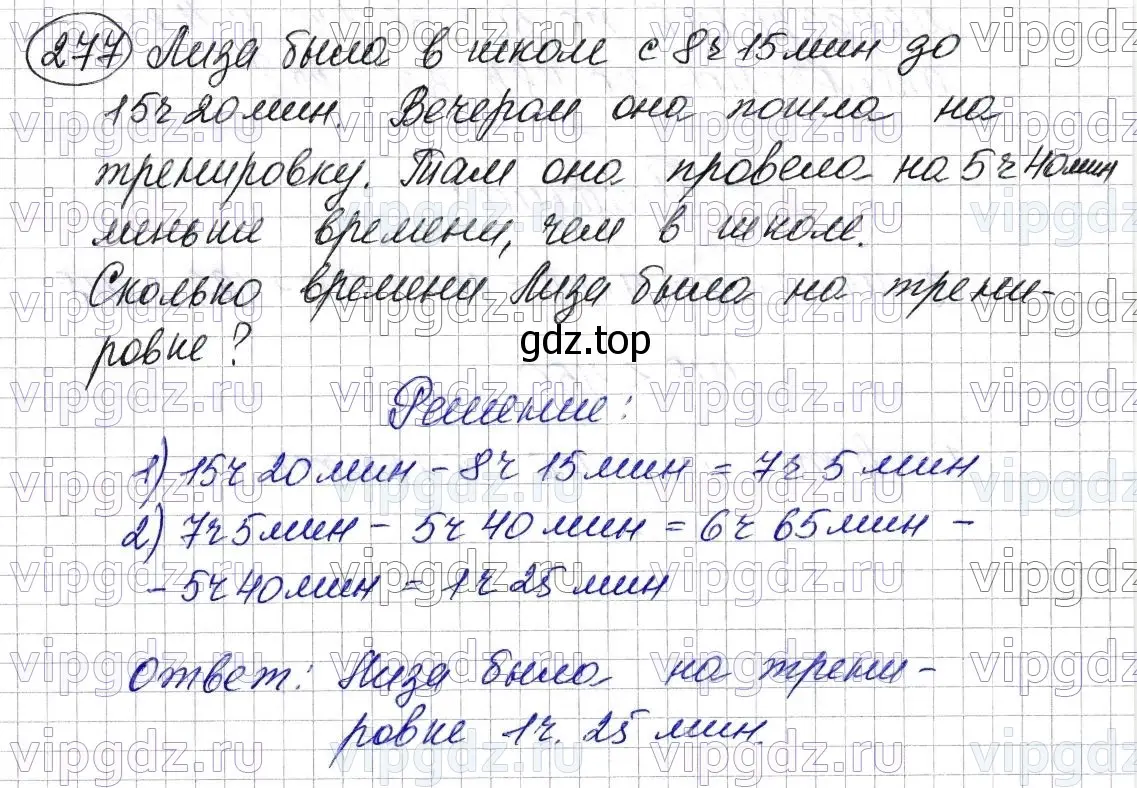 277 Лиза была в школе с 8 ч 15 мин до
15 ч 20 мин. Вечером она пошла на
тренировку. Там она провела на 5 ч 40 мин
меньше времени, чем в школе.
Сколько времени Лиза была на трени-
ровке?
gdz.top
Решение:
1) 15 ч 20 мин - 8 ч 15 мин = 7 ч 5 мин
2) 7 ч 5 мин - 5 ч 40 мин = 6 ч 65 мин -
- 5 ч 40 мин = 1 ч 25 мин
Ответ: Лиза была на трени-
ровке 1 ч. 25 мин.
vipgdz.ru